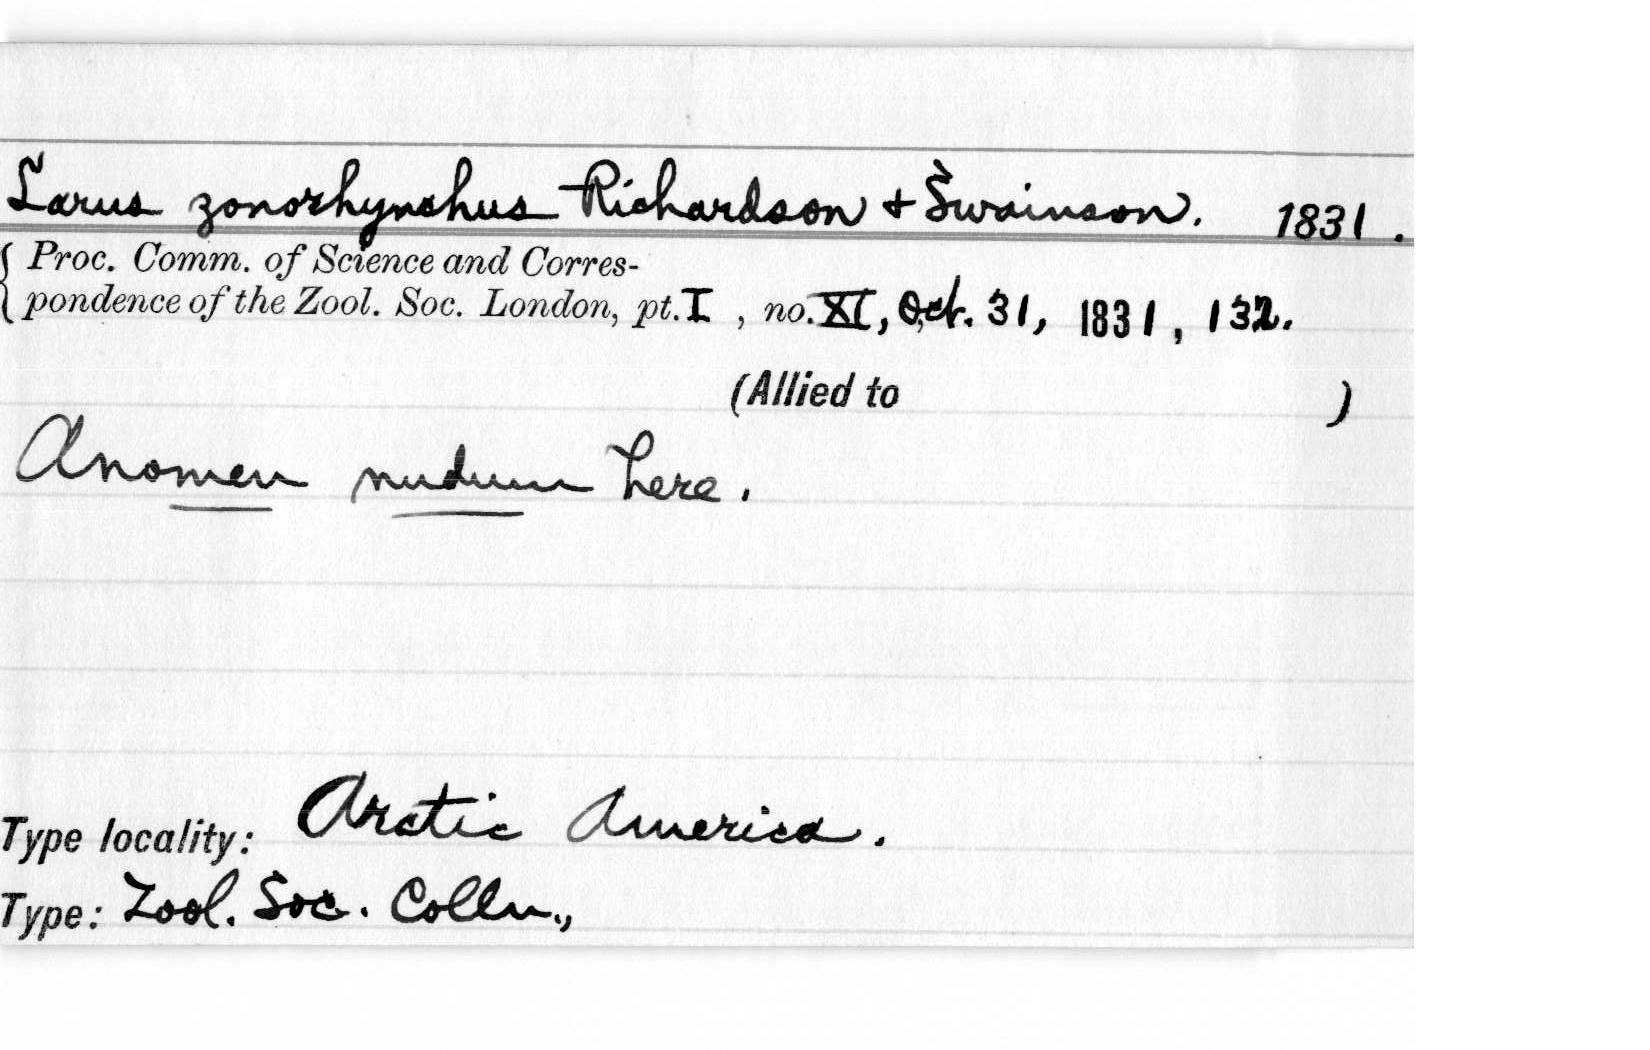 Larus zonorhynchus Richardson + Swainson. 1831.
Proc. Comm. of Science and Corres-
pondence of the Zool. Soc. London, pt. I, no. XI, Oct. 31, 1831, 132.
(Allied to )
A nomen nudum here.
Type locality: Arctic America.
Type: Zool. Soc. Colln.,